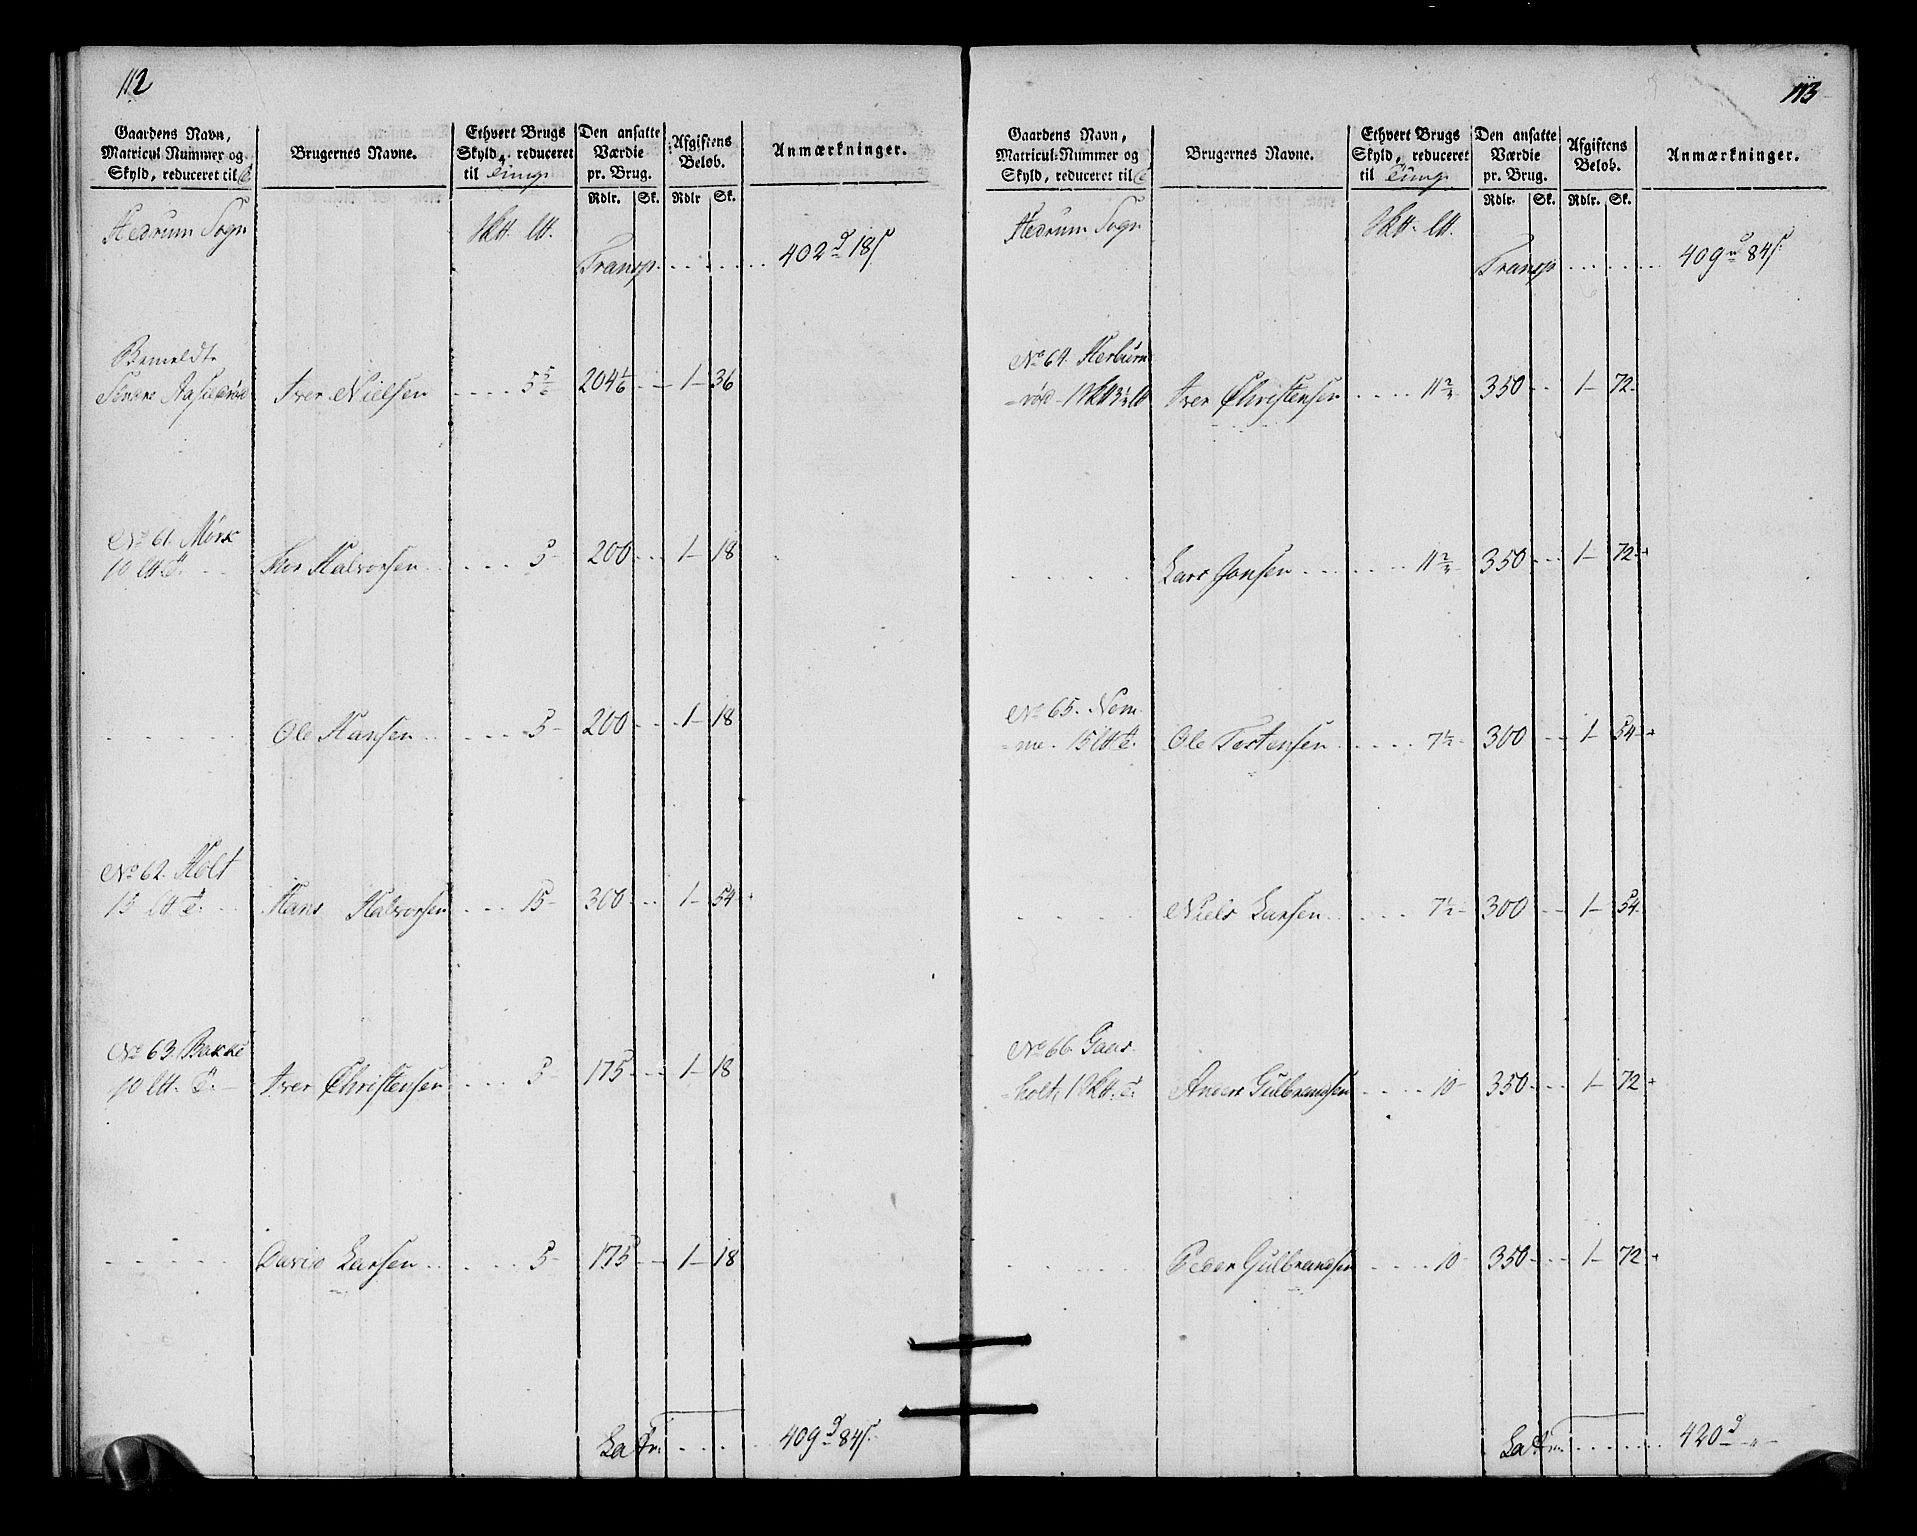 112
Gaardens Navn, Matricul Nummer og Skyld, reduceret til T
Brugernes Navne.
Ethvert Brugs Skyld, reduceret til Tunge
Den ansatte Værdie pr. Brug.
Afgiftens Beløb.
Anmærkninger.
Rdlr. Sk. Rdlr Sk.
Hedrum Sogn
Sktt. Ltt.
Transp. 402 d 18 s
Bemeldte
Iver Nielsen 5 5/6 204 1/6 1 36
No 61. Mørk
10 Ltt T. Thor Halvorsen 5 200 1 18
Ole Hansen 5 200 1 18
No 62. Holt
15 Ltt T. Hans Halvorsen 15 300 1 54
No 63. Bakke
10 Ltt. T. Iver Christensen 5 175 1 18
David Larsen 5 175 1 18
Latr. 409 d 84 s
113
Gaardens Navn, Matricul-Nummer og Skyld, reduceret til T
Brugernes Navne.
Ethvert Brugs Skyld, reduceret til Tunge
Den ansatte Værdie pr. Brug.
Afgiftens Beløb.
Anmærkninger.
Rdlr. Sk. Rdlr. Sk.
Hedrum Sogn
Sktt. Ltt.
Transp 409 d 84 s
No 64. Herbørn
=rød 1 Skt 3½ Ltt Iver Christensen 11 350 1 72
Lars Jonsen 11 350 1 72
No 65. Nem
=me. 15 Ltt T. Ole Tostensen 7½ 300 1 54
Niels Larsen 7½ 300 1 54
No 66. Gaas
=holt, 1 Sktt. T. Anders Gulbrandsen 10 350 1 72
Peder Gulbrandsen 10 350 1 72
Latr. 420 d